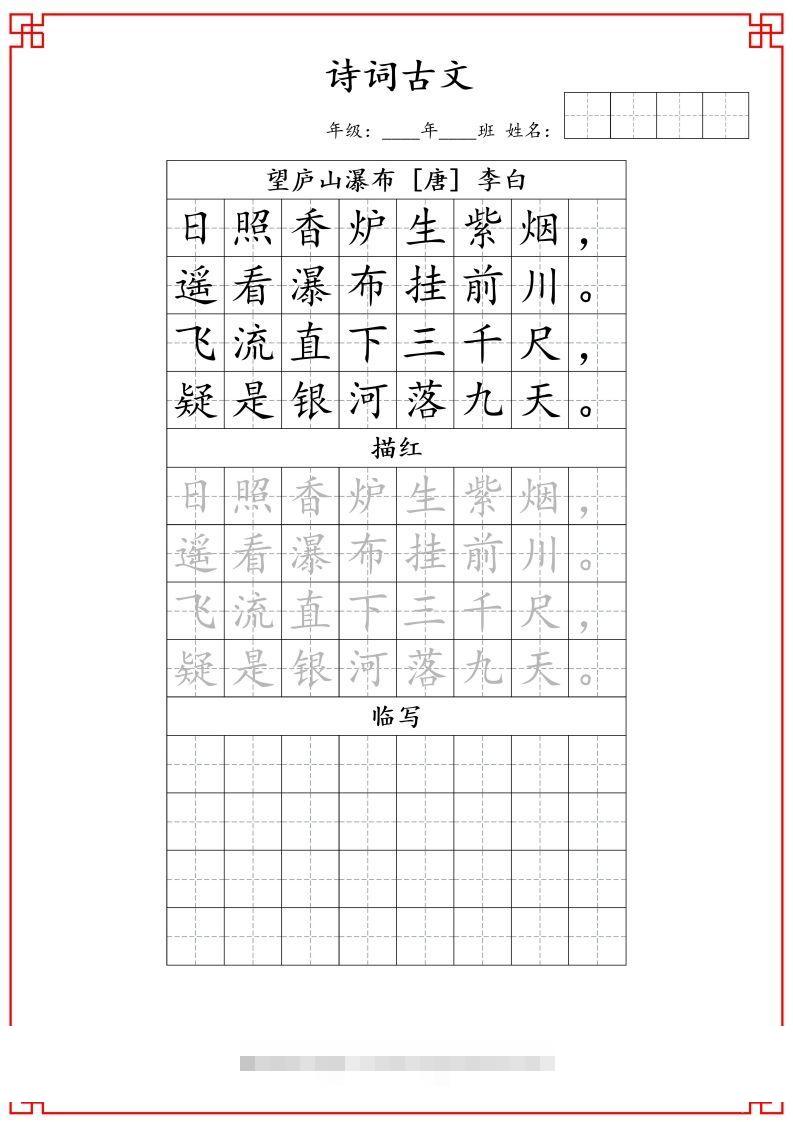 诗词古文
年级：____年____班 姓名：
望庐山瀑布［唐］李白
日照香炉生紫烟，
遥看瀑布挂前川。
飞流直下三千尺，
疑是银河落九天。
描红
日照香炉生紫烟，
遥看瀑布挂前川。
飞流直下三千尺，
疑是银河落九天。
临写